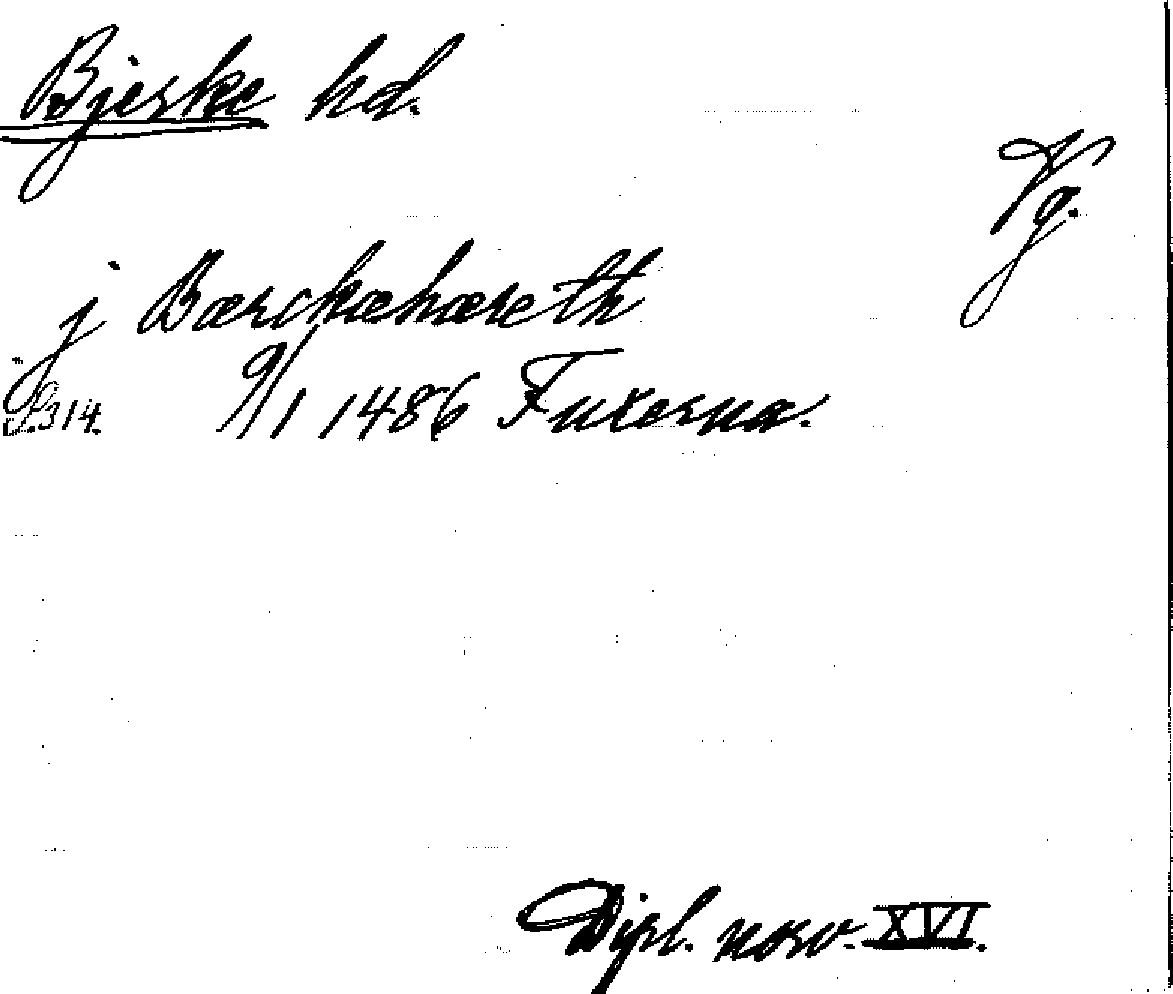 Bjerke hd.
Vg.
j Bærckæhæreth
S. 314. 9/1 1486 Fuxerna.
Dipl. norv. XVI.